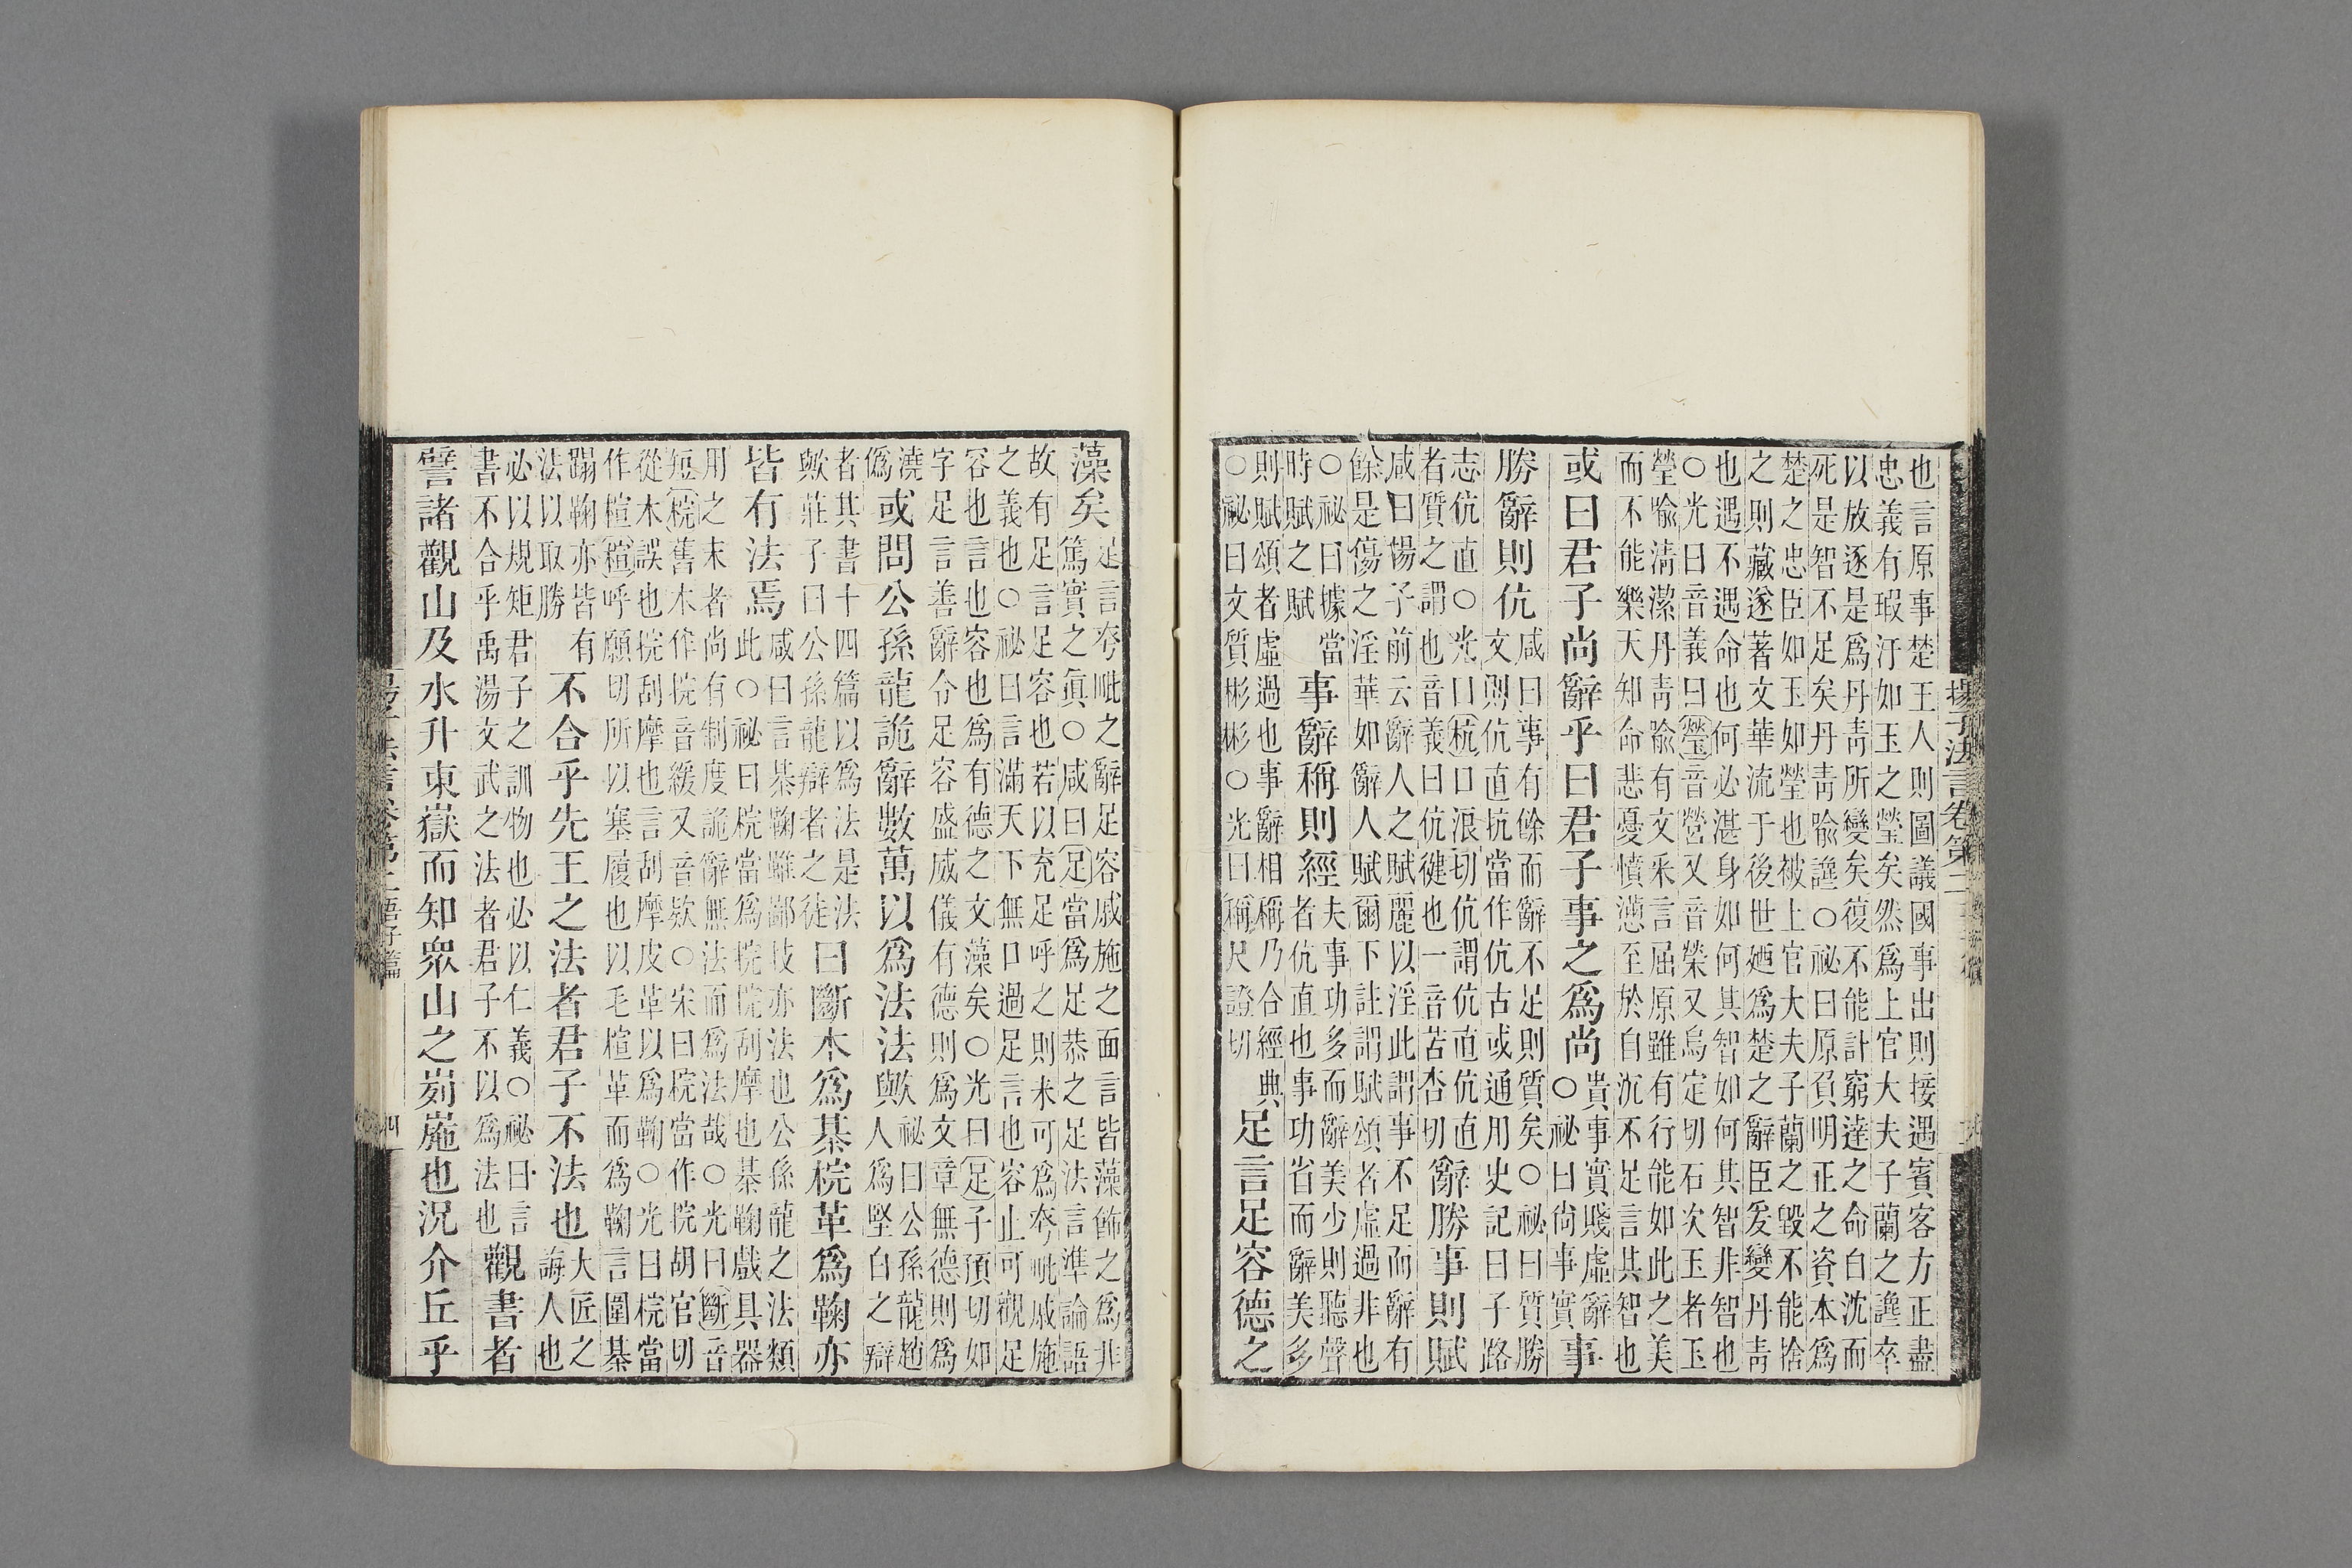 揚子法言卷第二
也言原事楚王人則圖議國事出則接遇賓客方正盡
忠義有瑕汙如玉之瑩矣然爲上官大夫子蘭之讒卒
以放逐是爲丹靑所變矣復不能計窮達之命自沈而
死是智不足矣丹靑喩讒○祕曰原負明正之資本爲
楚之忠臣如玉如瑩也被上官大夫子蘭之毀不能捨
之則藏遂著文華流于後世廼爲楚之辭臣爰變丹靑
也遇不遇命也何必湛身如何其智如何其智非智也
○光曰音義曰瑩音營又音榮又烏定切石次玉者玉
瑩喩淸潔丹靑喩有文采言屈原雖有行能如此之美
而不能樂天知命悲憂憤懣至於自沉不足言其智也
或曰君子尚辭乎曰君子事之爲尚
貴事實賤虛辭
○祕曰尚事實
事
勝辭則伉
咸曰事有餘而辭不足則質矣○祕曰質勝
文則伉伉直抗當作伉古或通用史記曰子路
志伉直○光曰伉口浪切伉謂伉直伉直
者質之謂也音義曰伉健也一音苦杏切
辭勝事則賦
咸曰揚子前云辭人之賦麗以淫此謂事不足而辭有
餘是傷之淫華如辭人賦爾下註謂賦頌者虛過非也
○祕曰據當
時賦之賦
事辭稱則經
夫事功多而辭美少則聽聲
者伉直也事功省而辭美多
則賦頌者虛過也事辭相稱乃合經典
○祕曰文質彬彬○光曰稱尺證切
足言足容德之
藻矣
足言夸毗之辭足容戚施之面言皆藻飾之爲非
篤實之眞○咸曰足當爲足恭之足法言準論語
故有足言足容也若以充足呼之則未可爲夸毗戚施
之義也○祕曰言滿天下無口過足言也容止可觀足
容也言也容也爲有德之文藻矣○光曰足子預切如
字足言善辭令足容盛威儀有德則爲文章無德則爲
澆
僞
或問公孫龍詭辭數萬以爲法法歟
祕曰公孫龍趙
人爲堅白之辯
者其書十四篇以爲法是法
歟莊子曰公孫龍辯者之徒
曰斷木爲棊梡革爲鞠亦
皆有法焉
咸曰言棊鞠雖鄙技亦法也公孫龍之法類
此○祕曰梡當爲捖捖刮摩也棊鞠戲具器
用之末者尚有制度詭辭無法而爲法哉○光曰斷音
短梡舊木作捖音緩又音款○宋曰梡當作捖胡官切
從木誤也捖刮摩也言刮摩皮革以爲鞠○光曰梡當
作楦楦呼願切所以塞履也以毛楦革而爲鞠言圍棊
蹋鞠亦皆有
法以取勝
不合乎先王之法者君子不法也
大匠之
誨人也
必以規矩君子之訓物也必以仁義○祕曰言
書不合乎禹湯文武之法者君子不以爲法也
觀書者
譬諸觀山及水升東嶽而知衆山之峛崺也況介丘乎